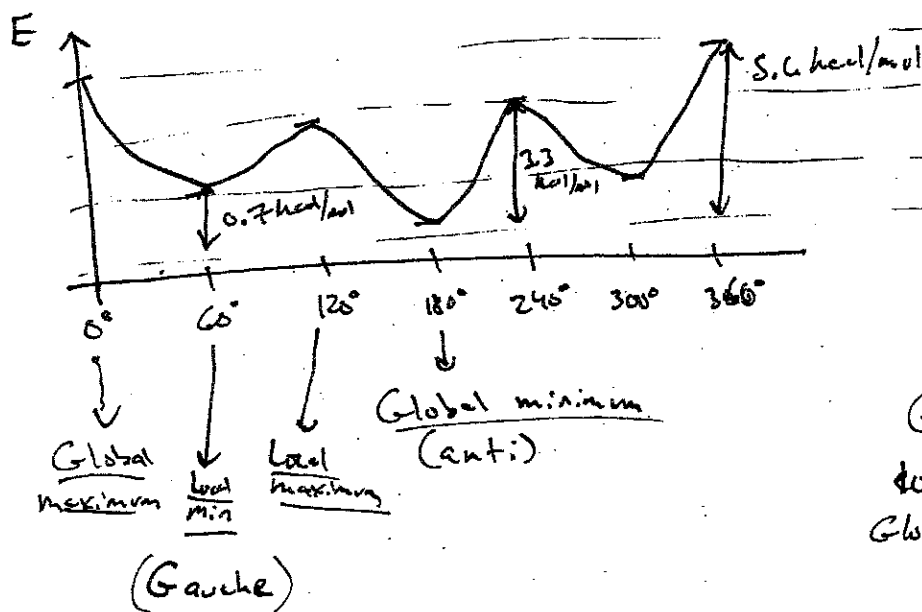 E
5.6 kcal/mol
3.3
kcal/mol
0.7 kcal/mol
0° 60° 120° 180° 240° 300° 360°
Global
maximum
Local
min
(Gauche)
Local
maximum
Global minimum
(anti)
(G
Glo